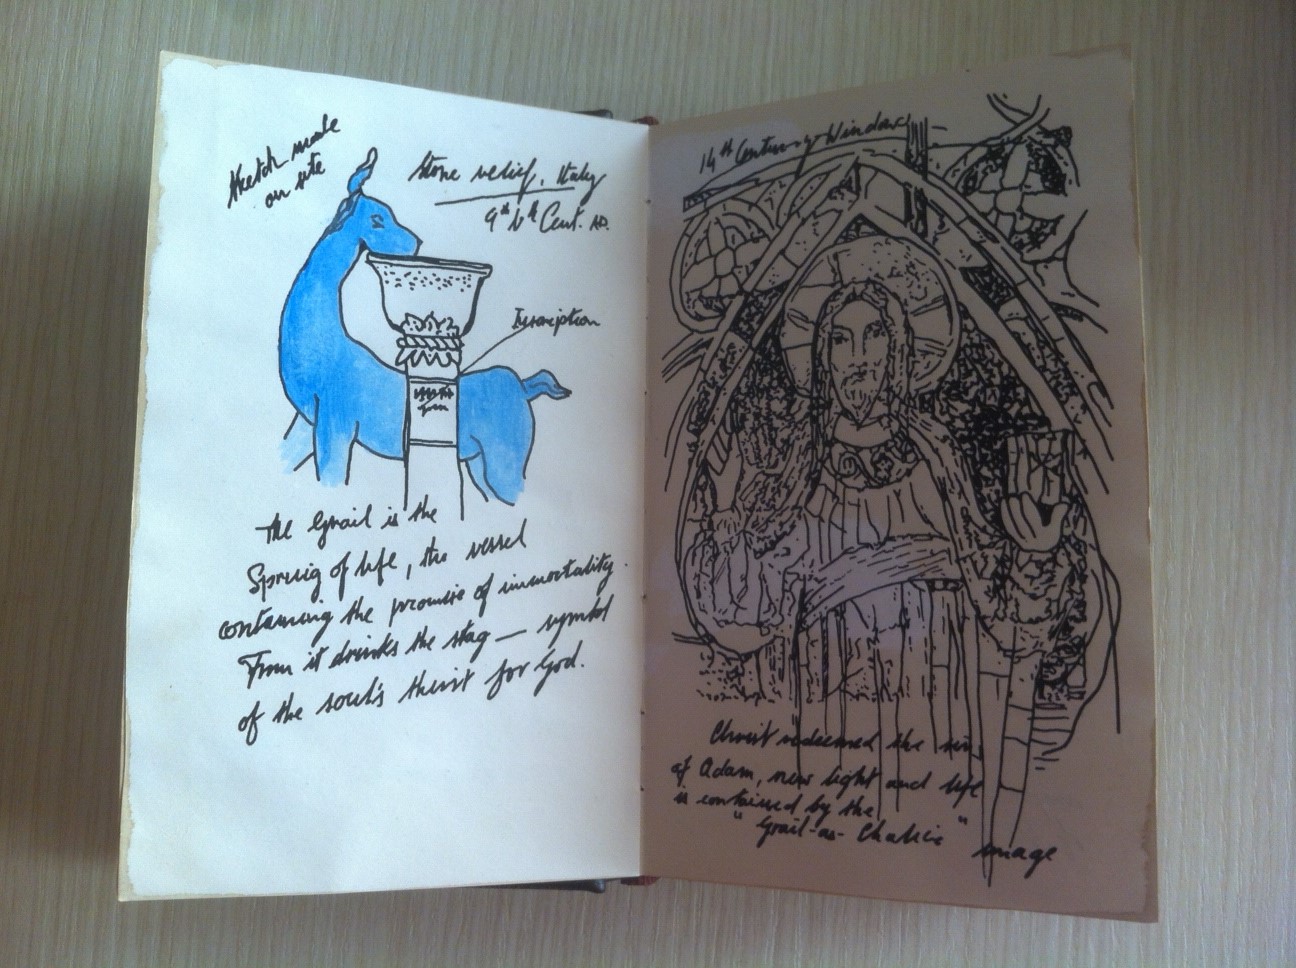 Sketch made
on site
Stone relief, Italy
9th Cent. AD.
Inscription
The Grail is the
Spring of life, the vessel
containing the promise of immortality.
From it drinks the stag — symbol
of the soul's thirst for God.
14th Century Window
Christ redeemed the sin
of Adam, new light and life
is contained by the
"Grail-as-Chalice" image